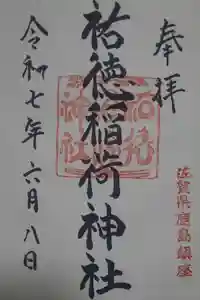 奉拝
佐賀県鹿島鎮座
祐徳稲荷神社
令和七年六月八日